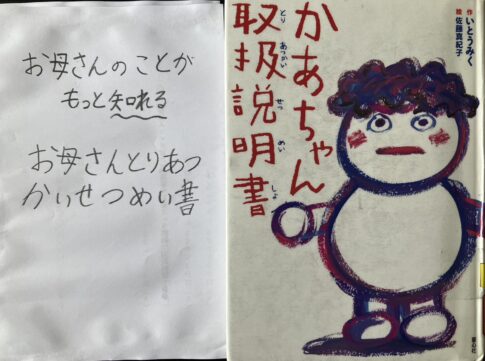 お母さんのことが
もっと知れる
お母さんとりあつ
かいせつめい書
かあちゃん
取扱説明書
とり あつかい せつ めい しょ
作 いとうみく
絵 佐藤真紀子
童心社